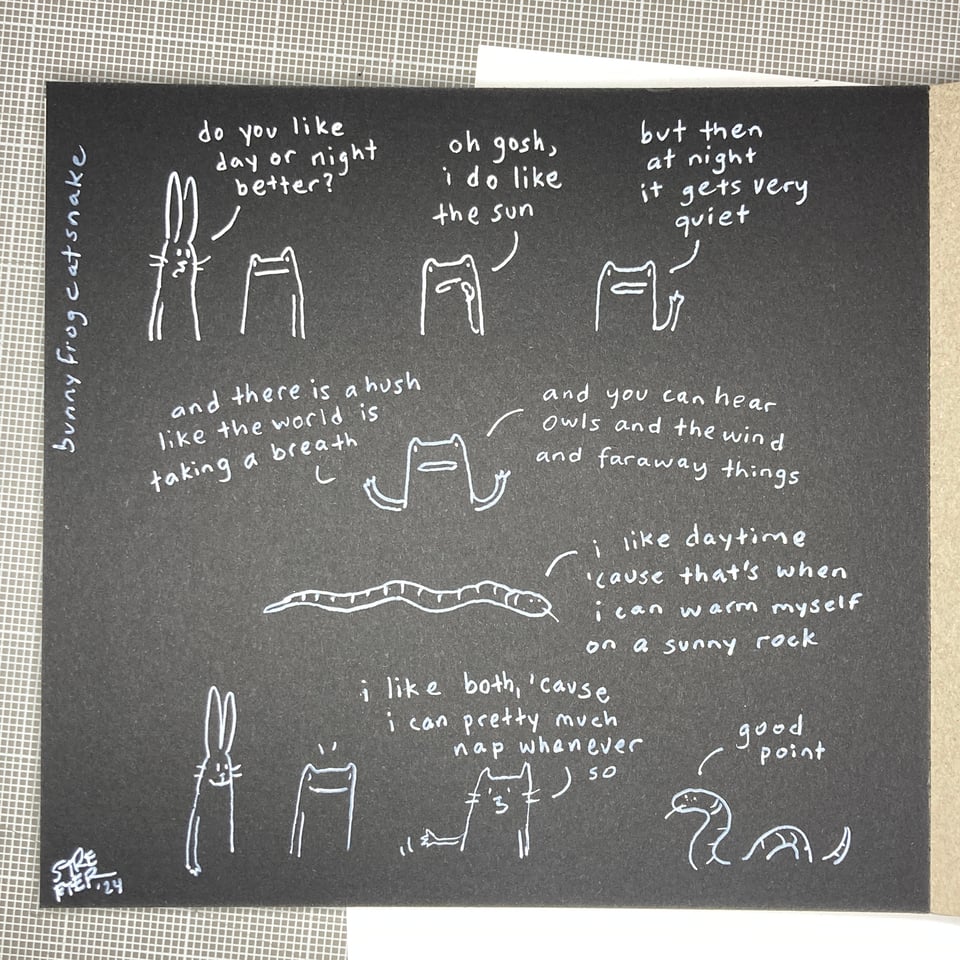 bunnyfrogcatsnake
do you like
day or night
better?
oh gosh,
i do like
the sun
but then
at night
it gets very
quiet
and there is a hush
like the world is
taking a breath
and you can hear
owls and the wind
and faraway things
i like daytime
'cause that's when
i can warm myself
on a sunny rock
i like both, 'cause
i can pretty much
nap whenever
so
good
point
STRE
FTER '24